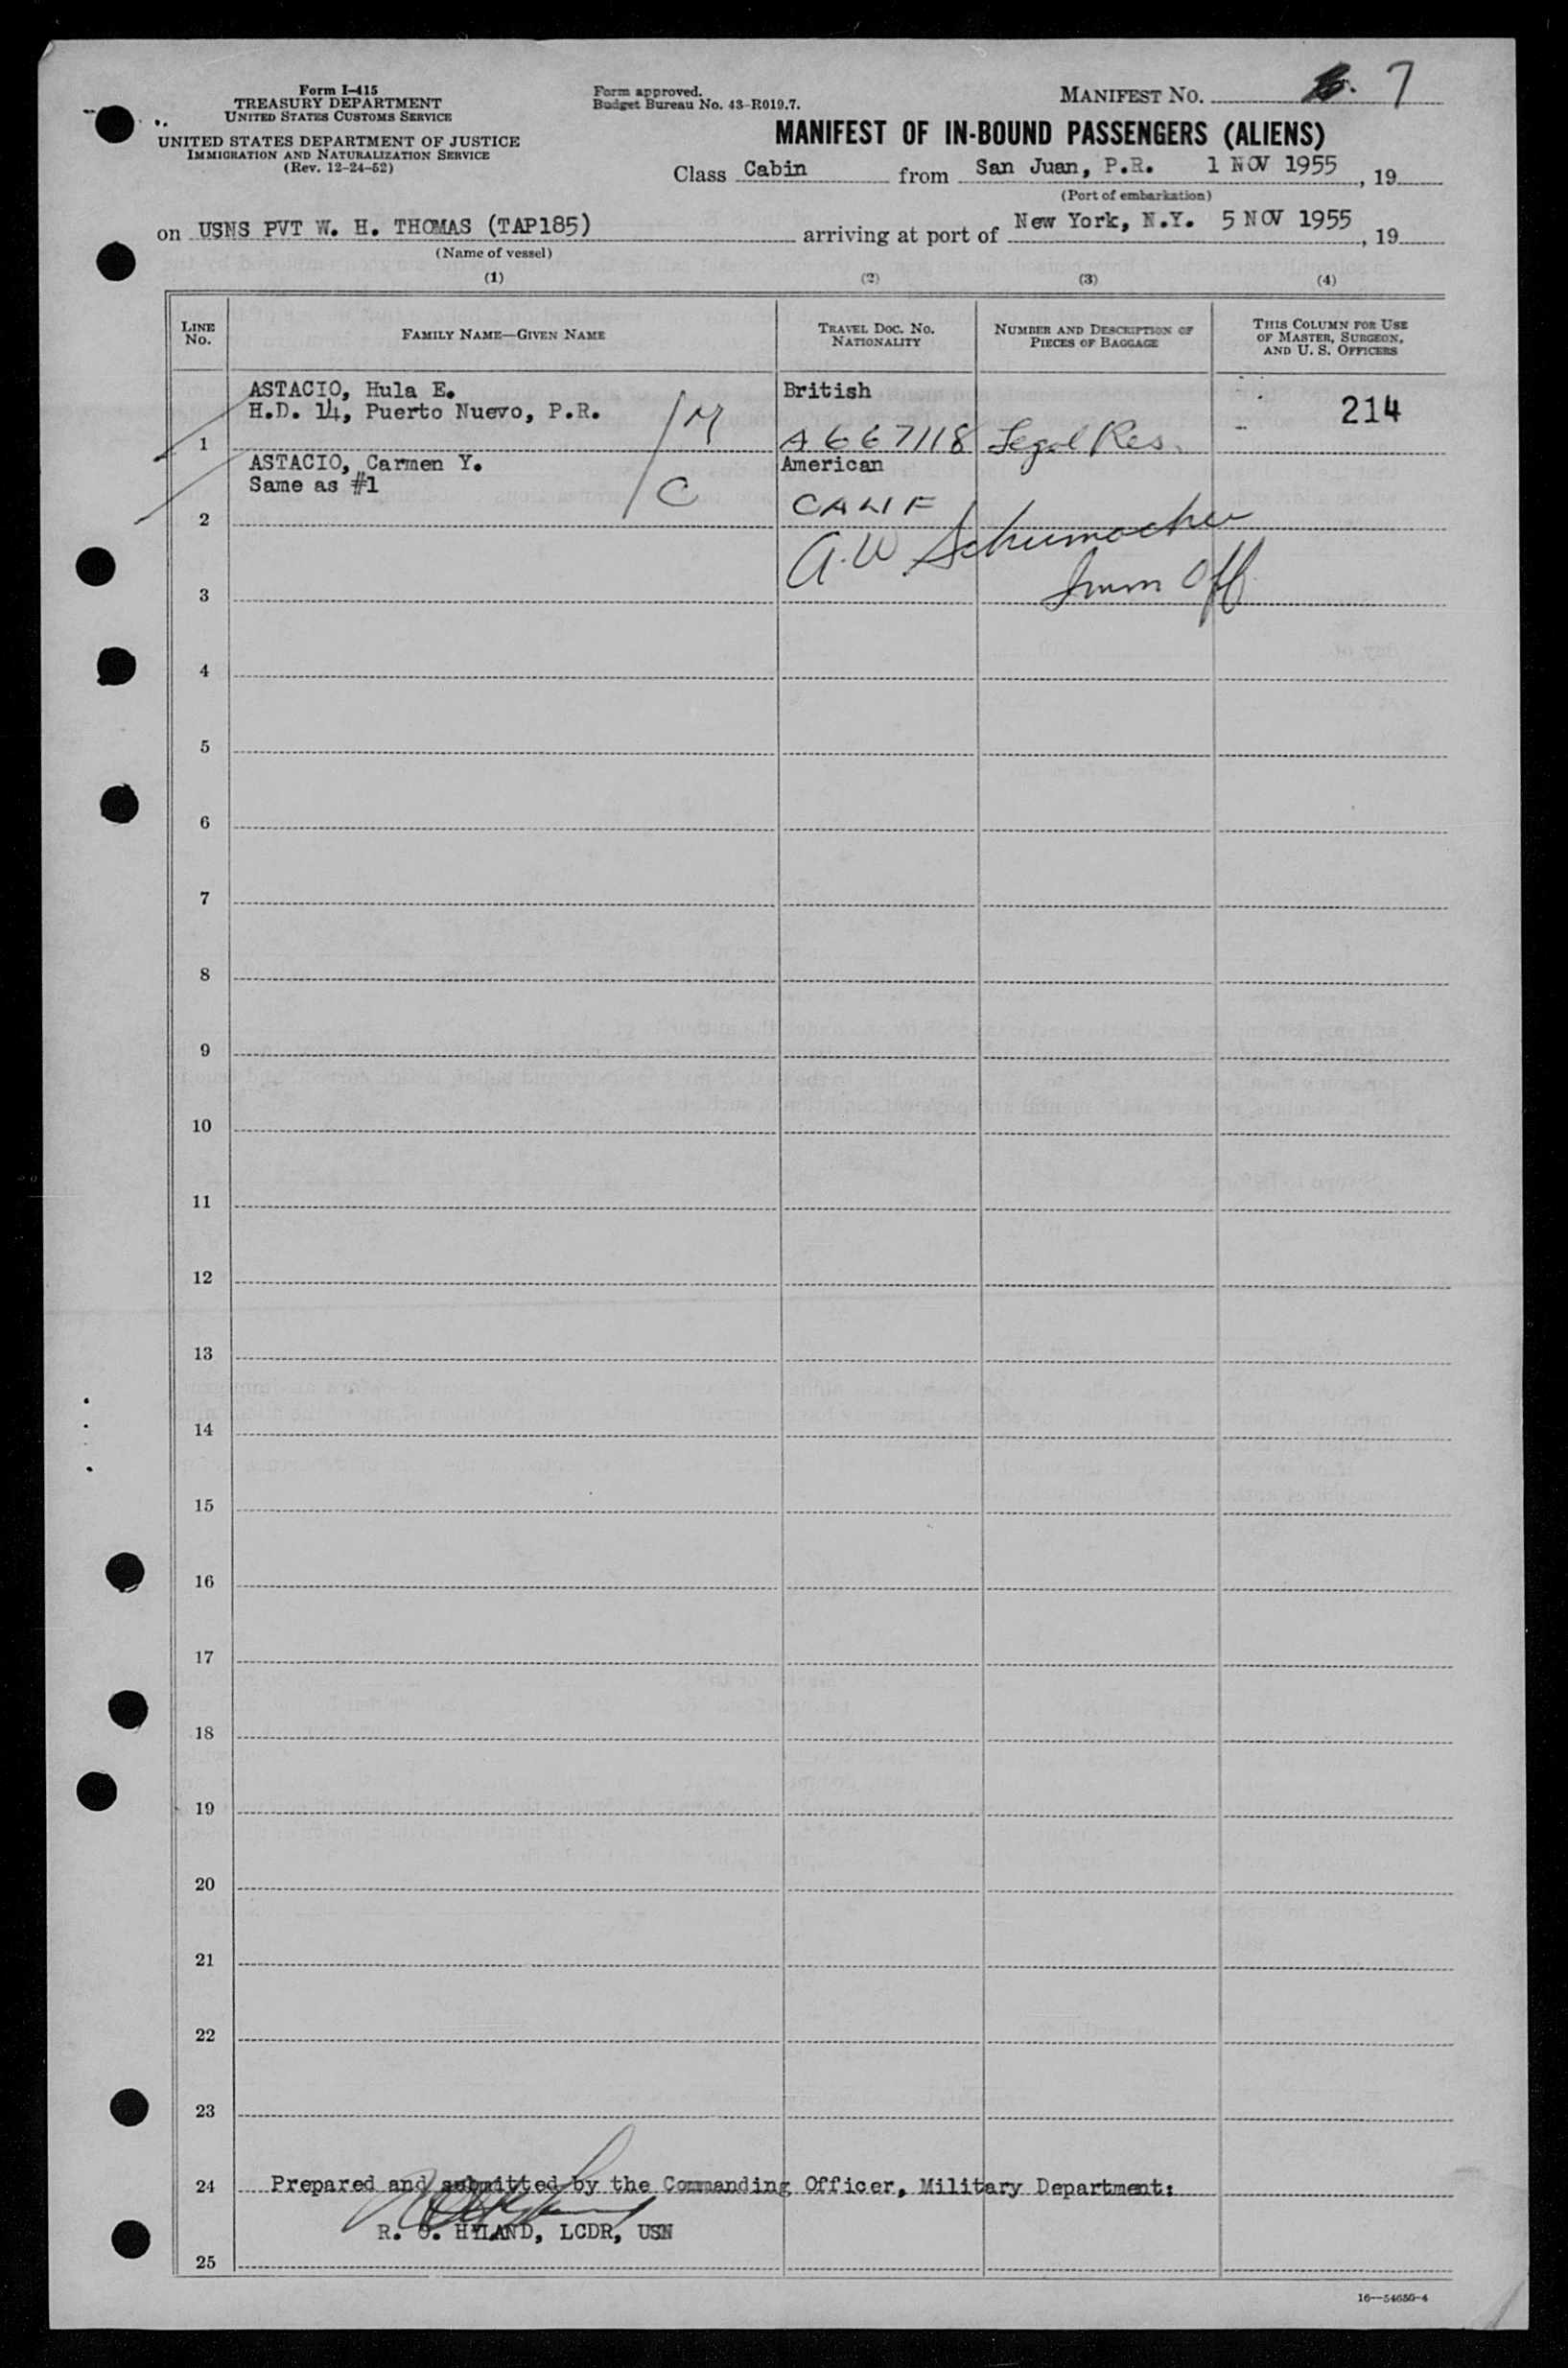 Form I-415
TREASURY DEPARTMENT
UNITED STATES CUSTOMS SERVICE
UNITED STATES DEPARTMENT OF JUSTICE
IMMIGRATION AND NATURALIZATION SERVICE
(Rev. 12-24-52)
Form approved.
Budget Bureau No. 43-R019.7.
MANIFEST NO. 7
MANIFEST OF IN-BOUND PASSENGERS (ALIENS)
Class Cabin from San Juan, P.R. 1 NOV 1955, 19
(Port of embarkation)
on USNS PVT W. H. THOMAS (TAP185) arriving at port of New York, N.Y. 5 NOV 1955, 19
(Name of vessel)
(1) (2) (3) (4)
LINE NO. FAMILY NAME—GIVEN NAME TRAVEL DOC. NO. NATIONALITY NUMBER AND DESCRIPTION OF PIECES OF BAGGAGE THIS COLUMN FOR USE OF MASTER, SURGEON, AND U. S. OFFICERS
ASTACIO, Hula E. British
H.D. 14, Puerto Nuevo, P.R. M 214
1 A667118 Legal Res.
ASTACIO, Carmen Y. American
Same as #1 C
2 CALIF
A.W. Schumacher
3 Imm Off
4
5
6
7
8
9
10
11
12
13
14
15
16
17
18
19
20
21
22
23
24 Prepared and submitted by the Commanding Officer, Military Department:
R. HYLAND, LCDR, USN
25
16—54656-4